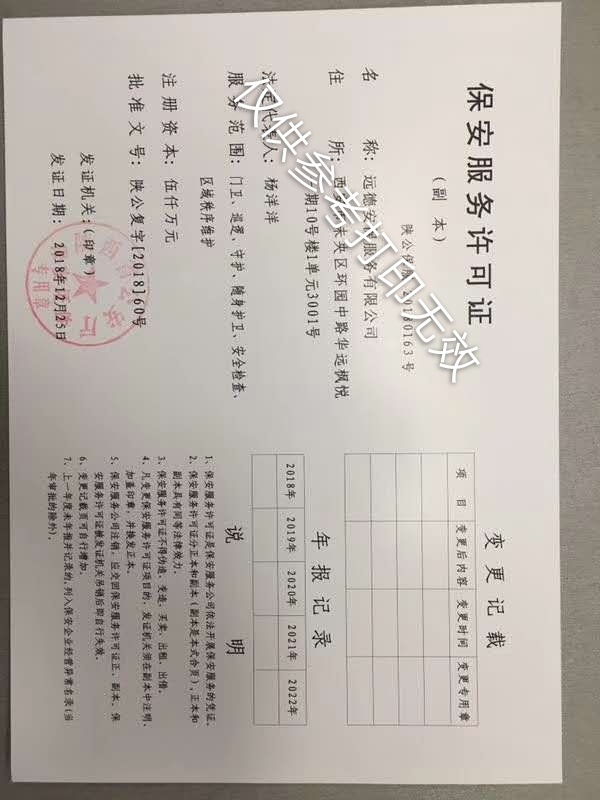 保安服务许可证
(副 本)
陕公保服20180163号
名 称：远德安保服务有限公司
住 所：西安市未央区环园中路华远枫悦
一期10号楼1单元3001号
法定代表人：杨洋洋
服务范围：门卫、巡逻、守护、随身护卫、安全检查、
区域秩序维护
注册资本：伍仟万元
批准文号：陕公复字[2018]60号
发证机关：(印章)
发证日期：2018年12月25日
专用章
仅供参考打印无效
变更记载
项 目 变更后内容 变更时间 变更专用章
年报记录
2018年 2019年 2020年 2021年 2022年
说 明
1、保安服务许可证是保安服务公司依法开展保安服务的凭证。
2、保安服务许可证分正本和副本(副本是本式合页)，正本和
副本具有同等法律效力。
3、保安服务许可证不得伪造、变造、买卖、出租、出借。
4、凡变更保安服务许可证项目的，发证机关须在副本中注明，
加盖印章，并换发正本。
5、保安服务公司注销，应交回保安服务许可证正、副本。保
安服务许可证被发证机关吊销后即自行失效。
6、变更记载页可自行增加。
7、上一年度未年报并记录的，列入保安企业经营异常名录(当
年审批的除外)。